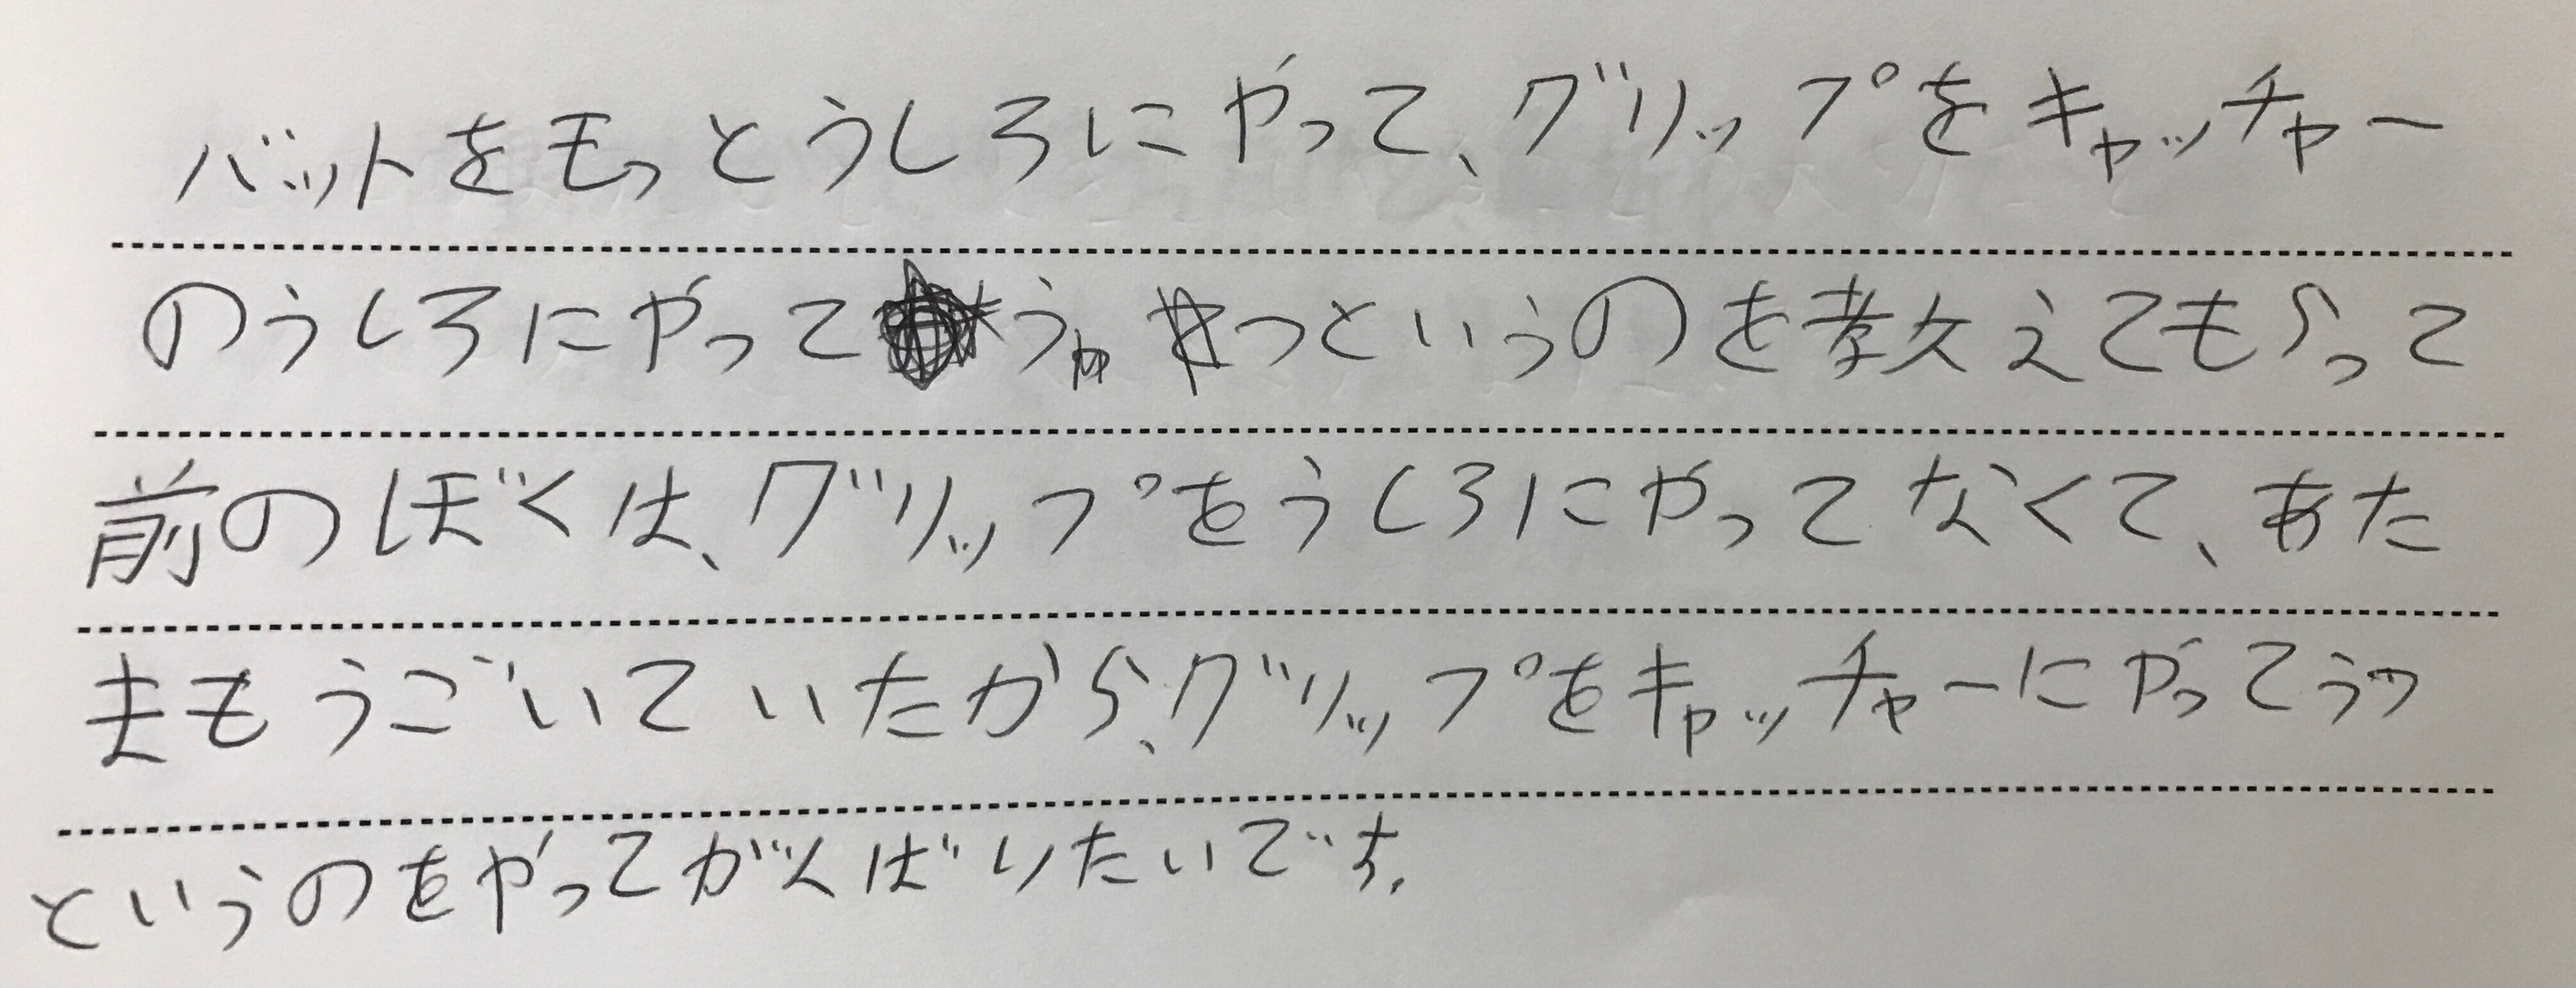 バットをもっとうしろにやって、グリップをキャッチャー
のうしろにやってうっというのを教えてもらって
前のぼくは、グリップをうしろにやってなくて、あた
まもうごいていたから、グリップをキャッチャーにやってうつ
というのをやってがんばりたいです。